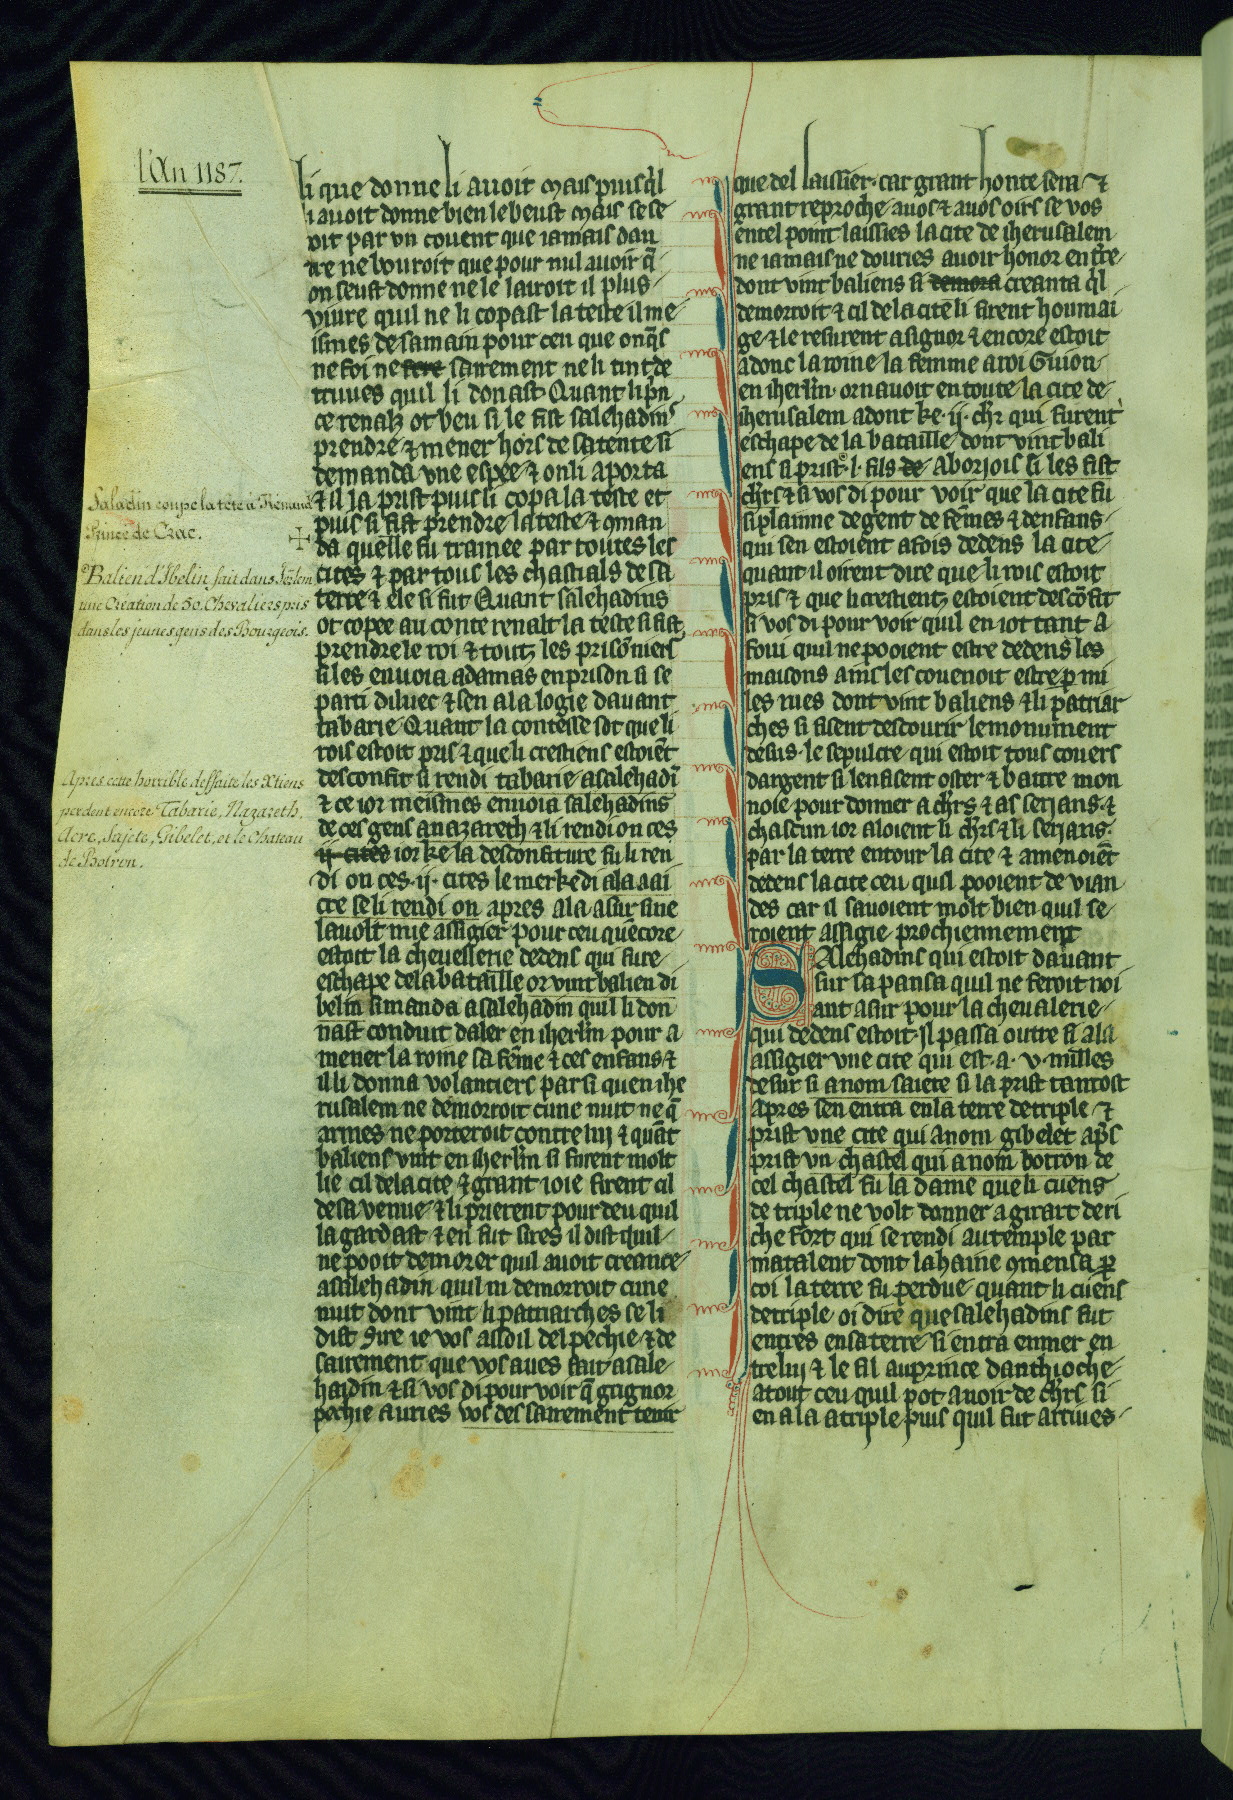 l'An 1187.
li que donne li auoit mais puis q̃l
li auoit donne bien le beust mais se se
roit par vn couent que iamais dau
tre ne bouroit que pour nul auoir q̃
on seust donne ne le lairoit il plus
viure quil ne li copast la teste il me
ismes de sa main pour ceu que onq̃s
ne foi ne fere sairement ne li tint de
truues quil li donast Quant li pᵃn
ce renalz ot beu si le fist salehadins
prendre ⁊ mener hors de sa tente si
demanda vne espee ⁊ on li aporta
⁊ il la prist puis li copa la teste et
puis si fist prendre la teste ⁊ ꝯman
da quelle fu trainee par toutes les
cites ⁊ par tous les chastials de sa
terre ⁊ ele si fut Quant salehadins
ot copee au conte renalt la teste si fist
prendre le roi ⁊ toutz les prisõniers
si les enuoia a damas en prison si se
parti diluec ⁊ sen ala logie dauant
tabarie Quant la contesse sot que li
rois estoit pris ⁊ que li crestiens estoiẽt
desconfit si rendi tabarie a salehadĩ
⁊ ce ior meismes enuoia salehadins
de ces gens a nazareth ⁊ li rendi on ces
ij cites ior ke la desconfiture fu li ren
di on ces .ij. cites le merkedi ala a ai
cre se li rendi on apres ala a sur sine
lauolt mie assigier pour ceu quẽcore
estoit la cheuellerie dedens qui fu re
eschape de la bataille or vint balien di
belin si manda a salehadin quil li don
nast conduit daler en iherl̃m pour a
mener la roine sa fẽme ⁊ ces enfans ⁊
il li donna volantiers par si quen ihe
rusalem ne demorroit cune nuit ne q̃
armes ne porteroit contre lui ⁊ quãt
baliens vint en iherl̃m si furent molt
lie cil de la cite ⁊ grant ioie firent cil
de sa venue ⁊ li prierent pour deu quil
la gardast ⁊ en fut sires il dist quil
ne pooit demorer quil auoit creance
a salehadin quil ni demorroit cune
nuit dont vint li patriarches se li
dist Sire ie vos assoil del pechie ⁊ de
sairement que vos aues fait a sale
hardin ⁊ si vos di pour voir q̃ grignor
pechie auries vos des sairement tenir
Saladin coupe la tête à Renaud
Prince de Crac.
Balien d'Ibelin fait dans Jerlem
une Création de 50. Chevaliers pris
dans les jeunes gens des Bourgeois.
Apres cette horrible deffaite les Xtiens
perdent encore Tabarie, Nazareth,
Acre, Sajete, Gibelet, et le Chateau
de Botron.
que del laissier car grant honte sera ⁊
grant reproche a uos ⁊ a uos oirs se vos
en tel point laissies la cite de iherusalem
ne iamais ne douries auoir honor en t̃re
dont vint baliens si demora creanta q̃l
demorroit ⁊ cil de la cite li firent houmai
ge ⁊ le resurent a signor ⁊ encore estoit
adonc la roine la femme a roi Guion
en iherl̃m or nauoit en toute la cite de
iherusalem adont ke .ij. chr̃ qui furent
eschape de la bataille dont vint bali
ens si prist .l. fils de a borjois si les fist
chr̃s ⁊ si vos di pour voir que la cite fu
si plainne de gent de fẽmes ⁊ denfans
qui sen estoient a fois dedens la cite
quant il oirent dire que li rois estoit
pris ⁊ que li crestientz estoient descõfit
si vos di pour voir quil en iot tant a
foui quil ne pooient estre dedens les
maisons ains les couenoit estre p̱ mi
les rues dont vint baliens ⁊ li patriar
ches si fisent descourir le monument
desus le sepulcre qui estoit tous couers
dargent si len fisent oster ⁊ batre mon
noie pour donner a chr̃s ⁊ as serjans ⁊
chascun ior aloient li chr̃s ⁊ li serjans
par la terre entour la cite ⁊ amenoiẽt
dedens la cite ceu quil pooient de vian
des car il sauoient molt bien quil se
roient assigie prochiennement
SAlehadins qui estoit dauant
sur sa pansa quil ne feroit noi
ant a sur pour la cheualerie
qui dedens estoit Il passa outre si ala
assigier vne cite qui est .a. v. milles
de sur si a nom saiete si la prist tantost
apres sen entra en la terre de triple ⁊
prist vne cite qui a nom gibelet ap̃s
prist vn chastel qui a nom botron de
cel chastel fu la dame que li cuens
de triple ne volt donner a girart de ri
che fort qui se rendi au temple par
matalent dont la haine ꝯmensa p̱
coi la terre fu perdue quant li cuens
de triple oi dire que salehadins fut
entres en sa terre si entra en mer en
tre lui ⁊ le fil au prince danthioche
a tout ceu quil pot auoir de chr̃s si
en ala a triple puis quil fut arriues